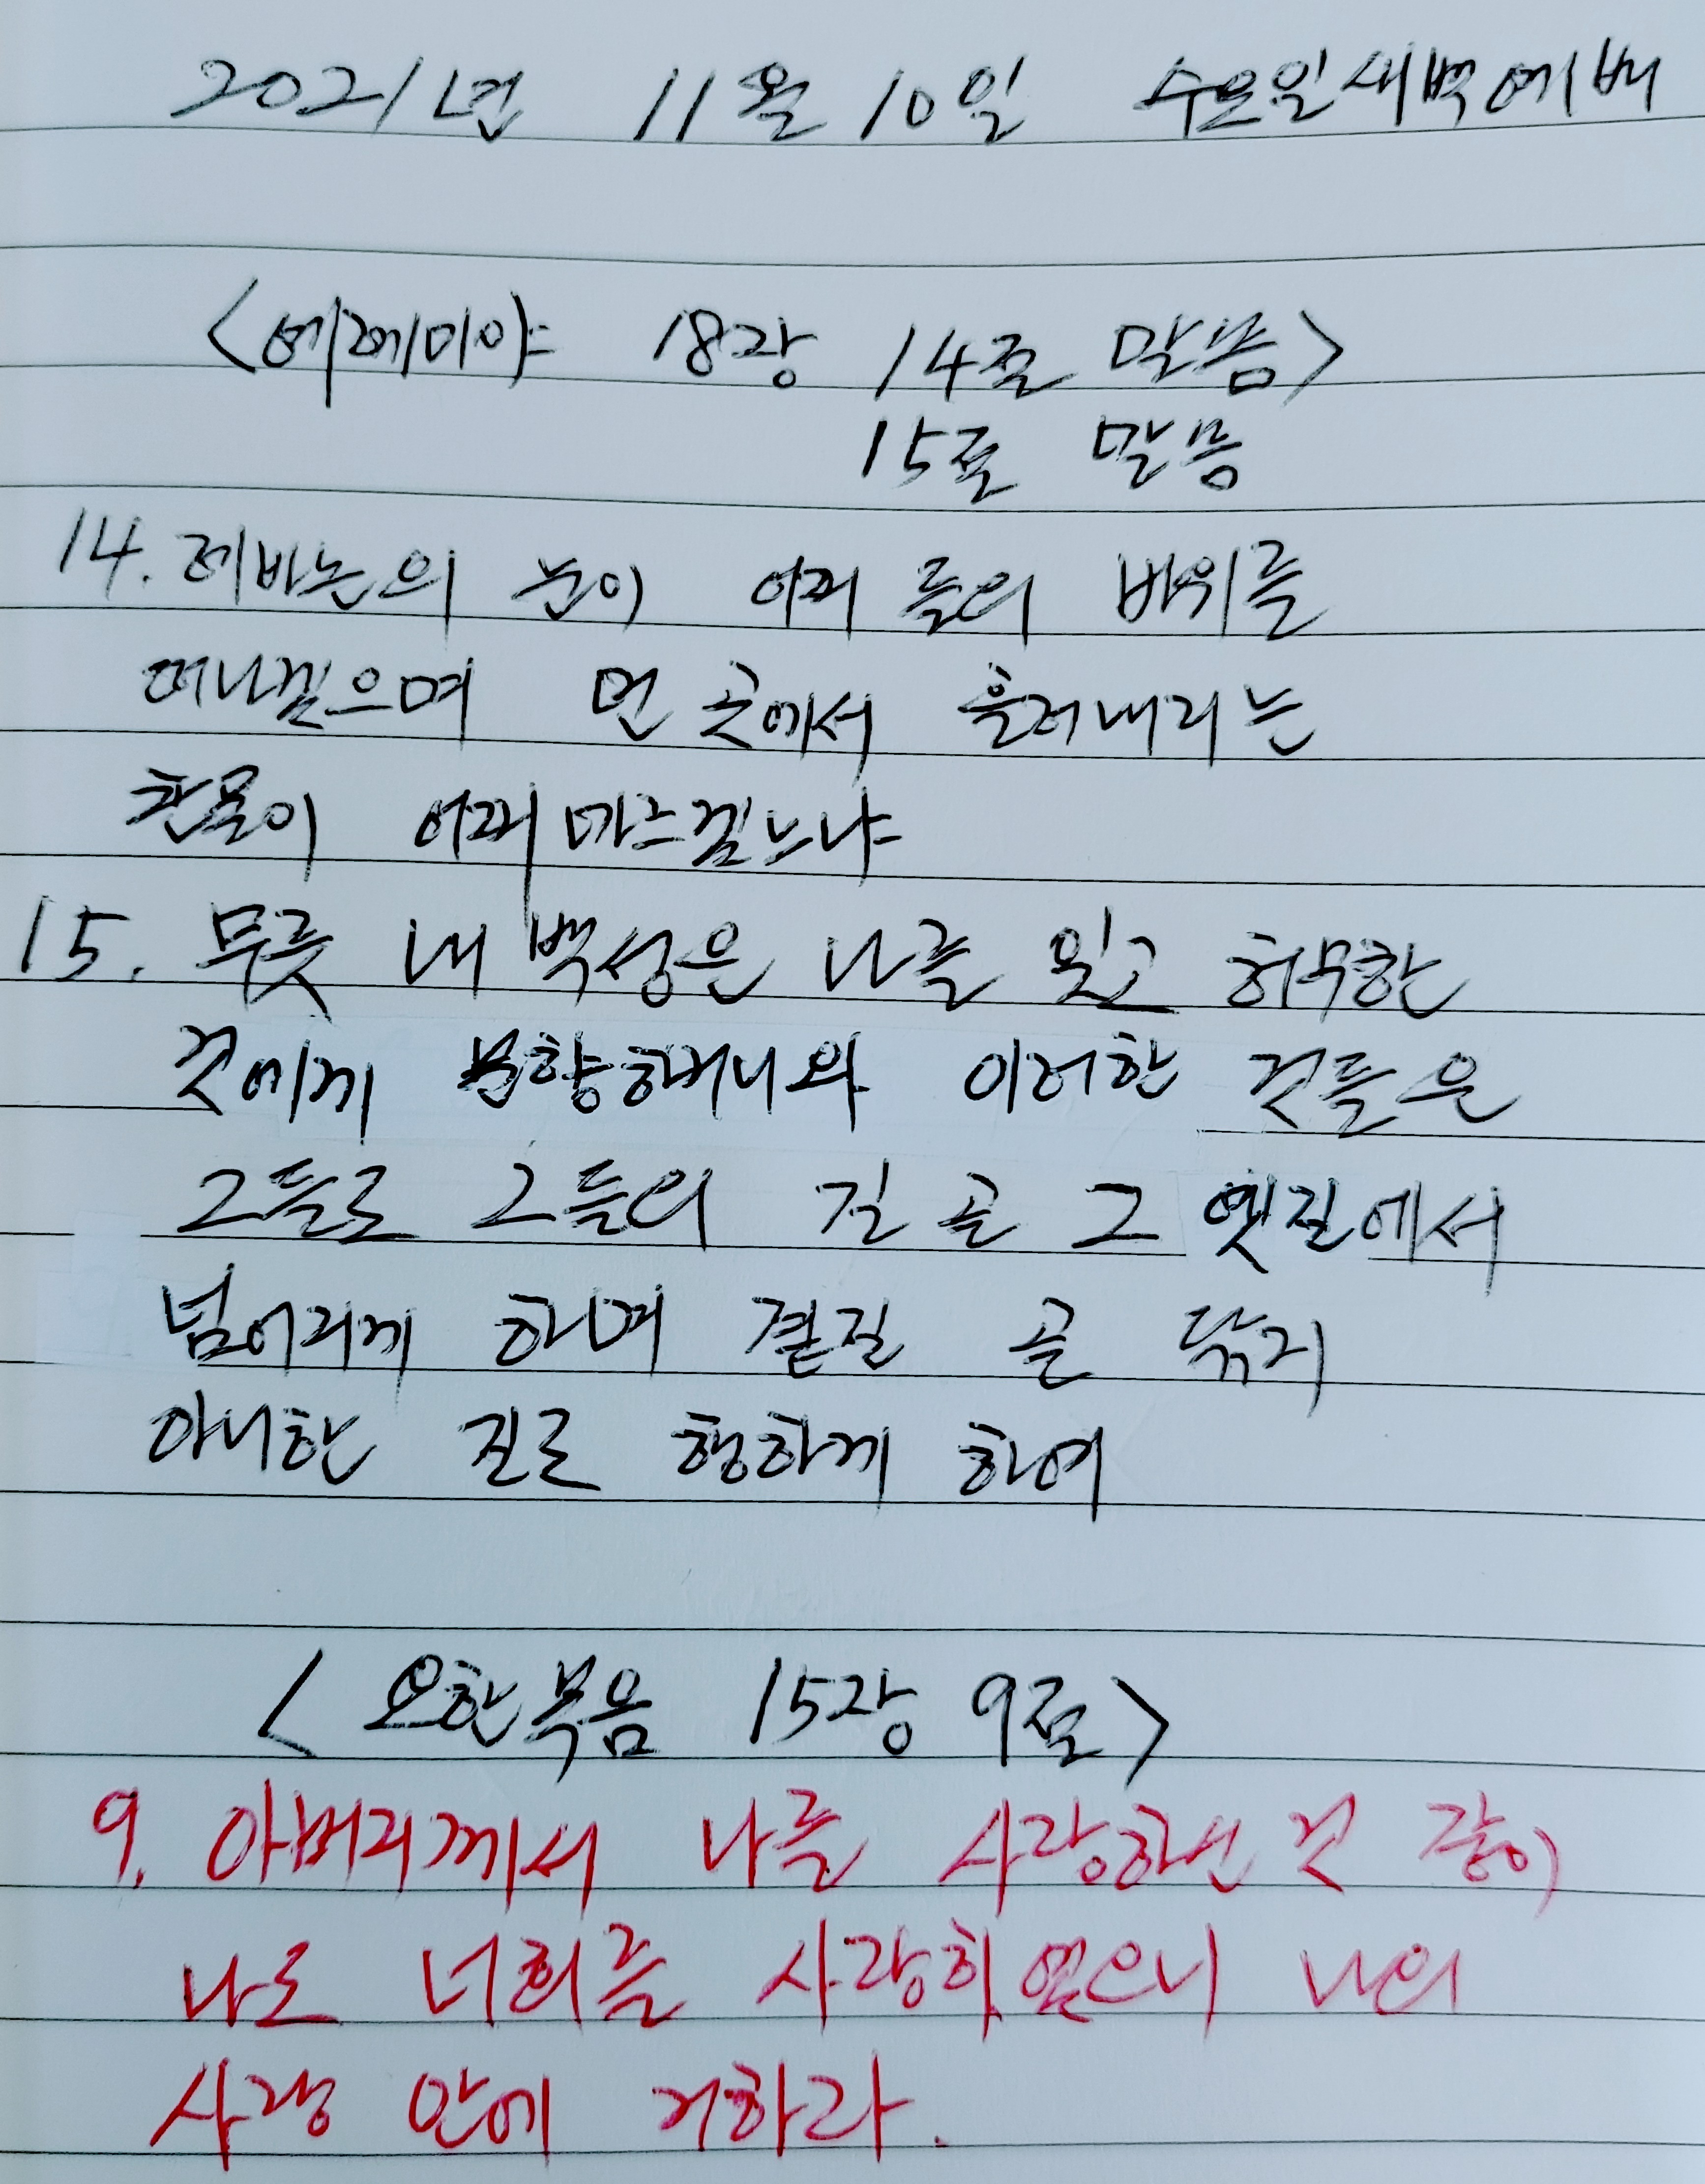 2021년 11월 10일 수요일새벽예배
<예레미야 18장 14절 말씀>
15절 말씀
14. 레바논의 눈이 어찌 들의 바위를
떠나겠으며 먼 곳에서 흘러내리는
찬물이 어찌 마르겠느냐
15. 무릇 내 백성은 나를 잊고 허무한
것에게 분향하거니와 이러한 것들은
그들로 그들의 길 곧 그 옛길에서
넘어지게 하며 곁길 곧 닦지
아니한 길로 행하게 하여
<요한복음 15장 9절>
9. 아버지께서 나를 사랑하신 것 같이
나도 너희를 사랑하였으니 나의
사랑 안에 거하라.